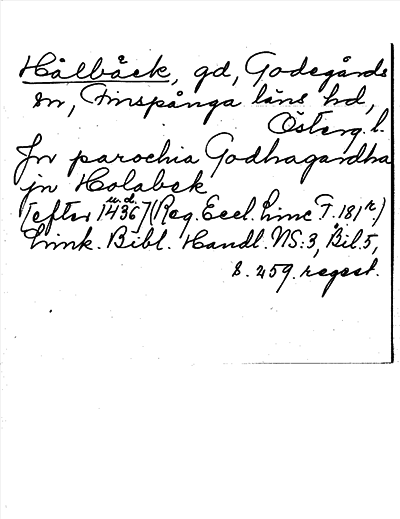 Hålbäck, gd, Godegårds
sn, Finspånga läns hd,
Österg. l.
Jn parochia Godhagardha
jn Holabek
u.d.
[efter 1436] (Reg. Eccl. Linc. F. 181 r.)
Link. Bibl. Handl. NS:3, Bil. 5,
s. 259. regest.